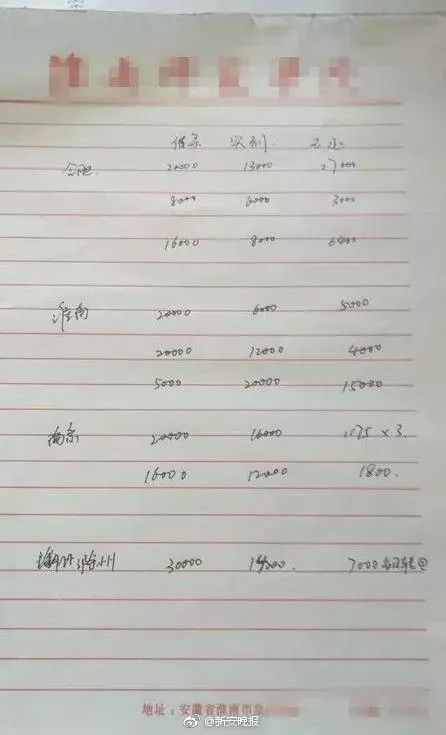 借条 实到
合肥 20000 13000 27000
8000 6000 3000
16000 8000 6400
淮南 20000 6000 5000
20000 12000 4000
5000 20000 15000
南京 20000 16000 1175×3
16000 12000 1800.
滁州 30000 7000当日转回
地址：安徽省淮南市
@新安晚报